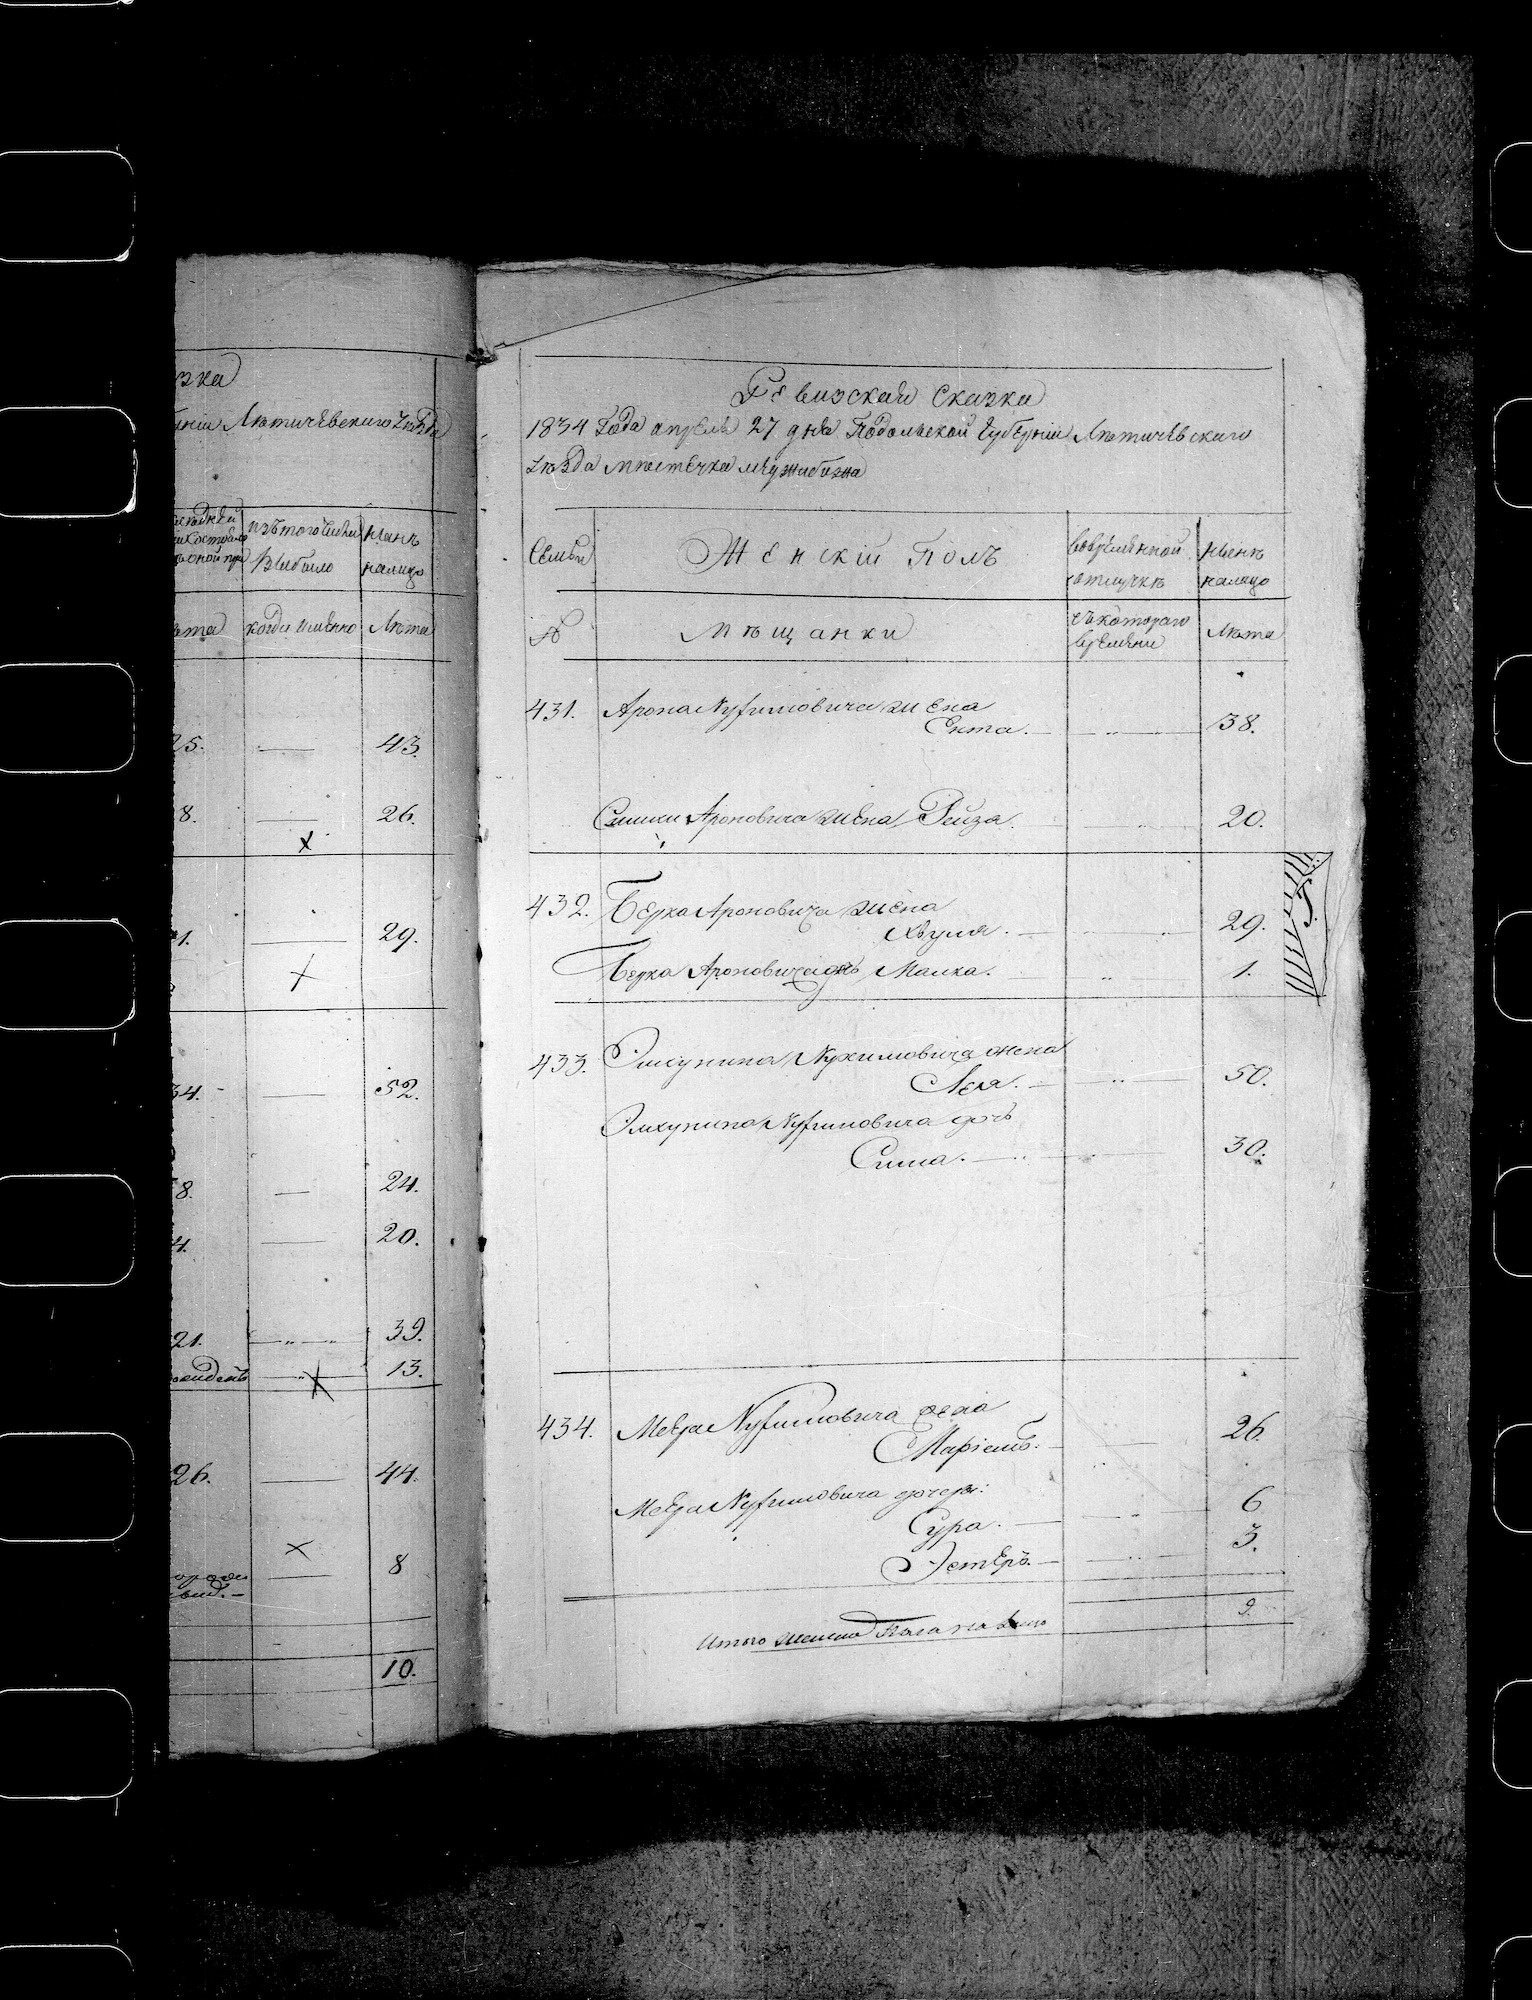 зка
рніи Лѣтичевскаго уѣзда
изъ того числа
нынѣ
выбыло
налицо
ѣта
когда именно
Лѣта
25.
43.
8.
26.
х
1.
29.
х
34.
52.
8.
24.
4.
20.
21.
39.
13.
х
26.
44.
х
8
10.
Ревизская Сказка
1834 Года апреля 27 дня Подольской Губерніи Лѣтичевскаго
уѣзда мѣстечка Межибожа
Семьи
Женскій Полъ
вовременной
отлучкѣ
нынѣ
налицо
№
Мѣщанки
съкотораго
времени
Лѣта
431. Арона Нухимовича жена
Ента. 38.
Симхи Ароновича жена Рейза. 20.
432. Берка Ароновича жена
Хвуля. 29.
Берка Ароновича дочь Малка. 1.
433. Элхунина Нухимовича жена
Лея. 50.
Элхунина Нухимовича дочь
Сима. 30.
434. Меера Нухимовича жена
Маріемъ. 26.
Меера Нухимовича дочери:
Сура. 6
Эстеръ. 3.
Итого женска Пола на лицо 9.